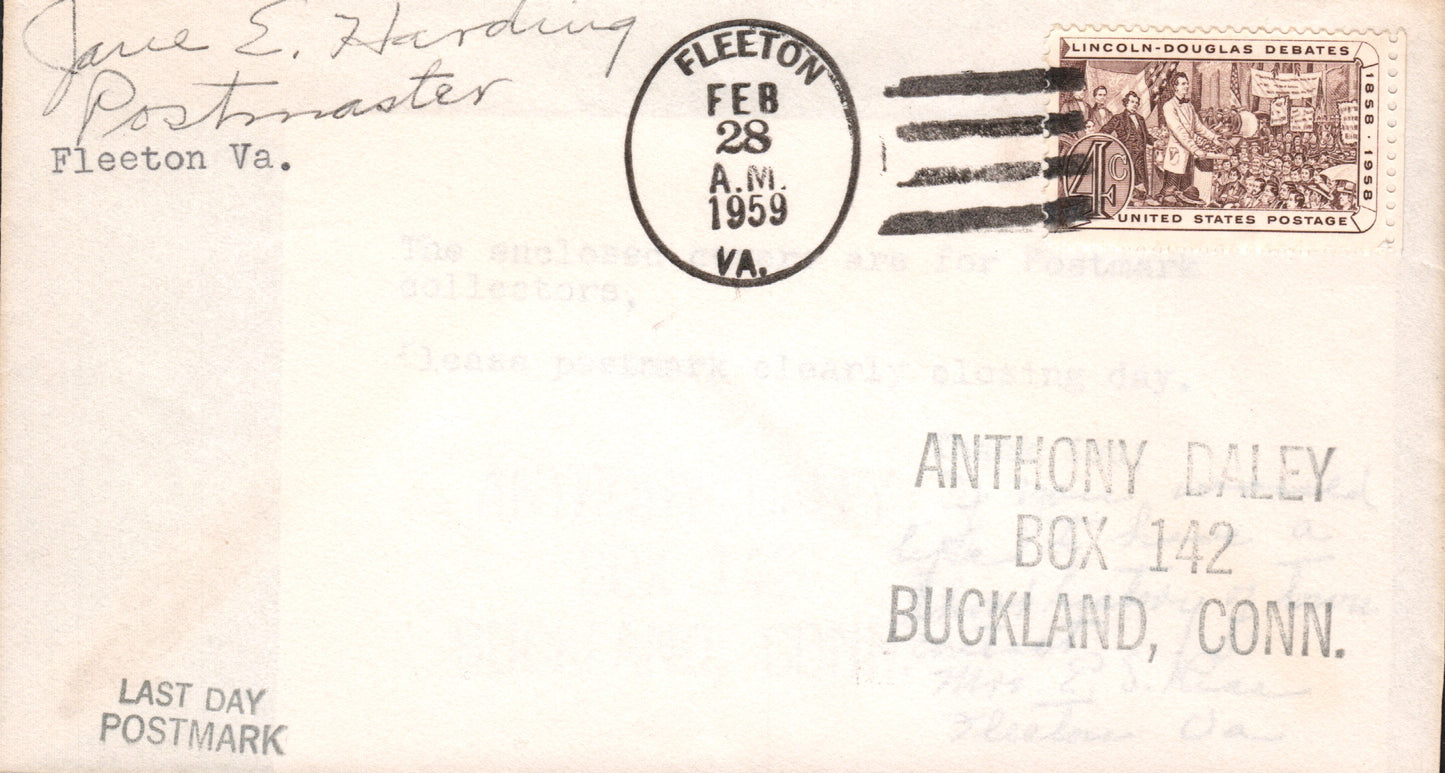 Jane E. Harding
Postmaster
Fleeton Va.
FLEETON
FEB
28
A.M.
1959
VA.
LINCOLN-DOUGLAS DEBATES
1858 · 1958
4c
UNITED STATES POSTAGE
The enclosed covers are for Postmark
collectors,
Please postmark clearly closing day.
ANTHONY DALEY
BOX 142
BUCKLAND, CONN.
Mrs E
Fleeton Va
LAST DAY
POSTMARK